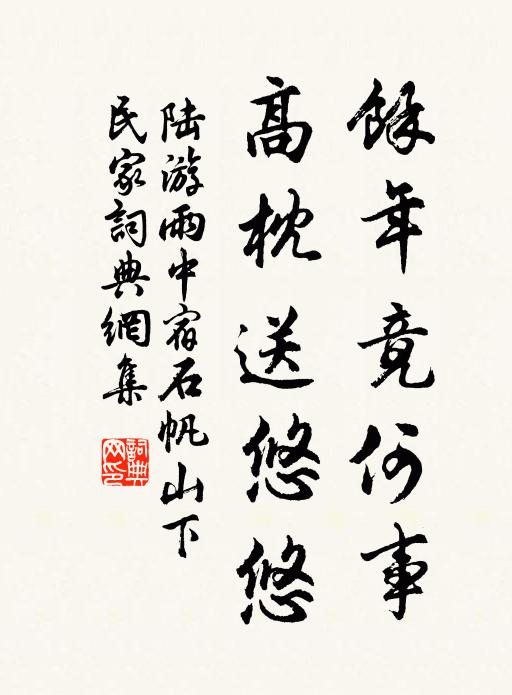 餘年竟何事
高枕送悠悠
陆游雨中宿石帆山下
民家詞典網集
詞典
网印